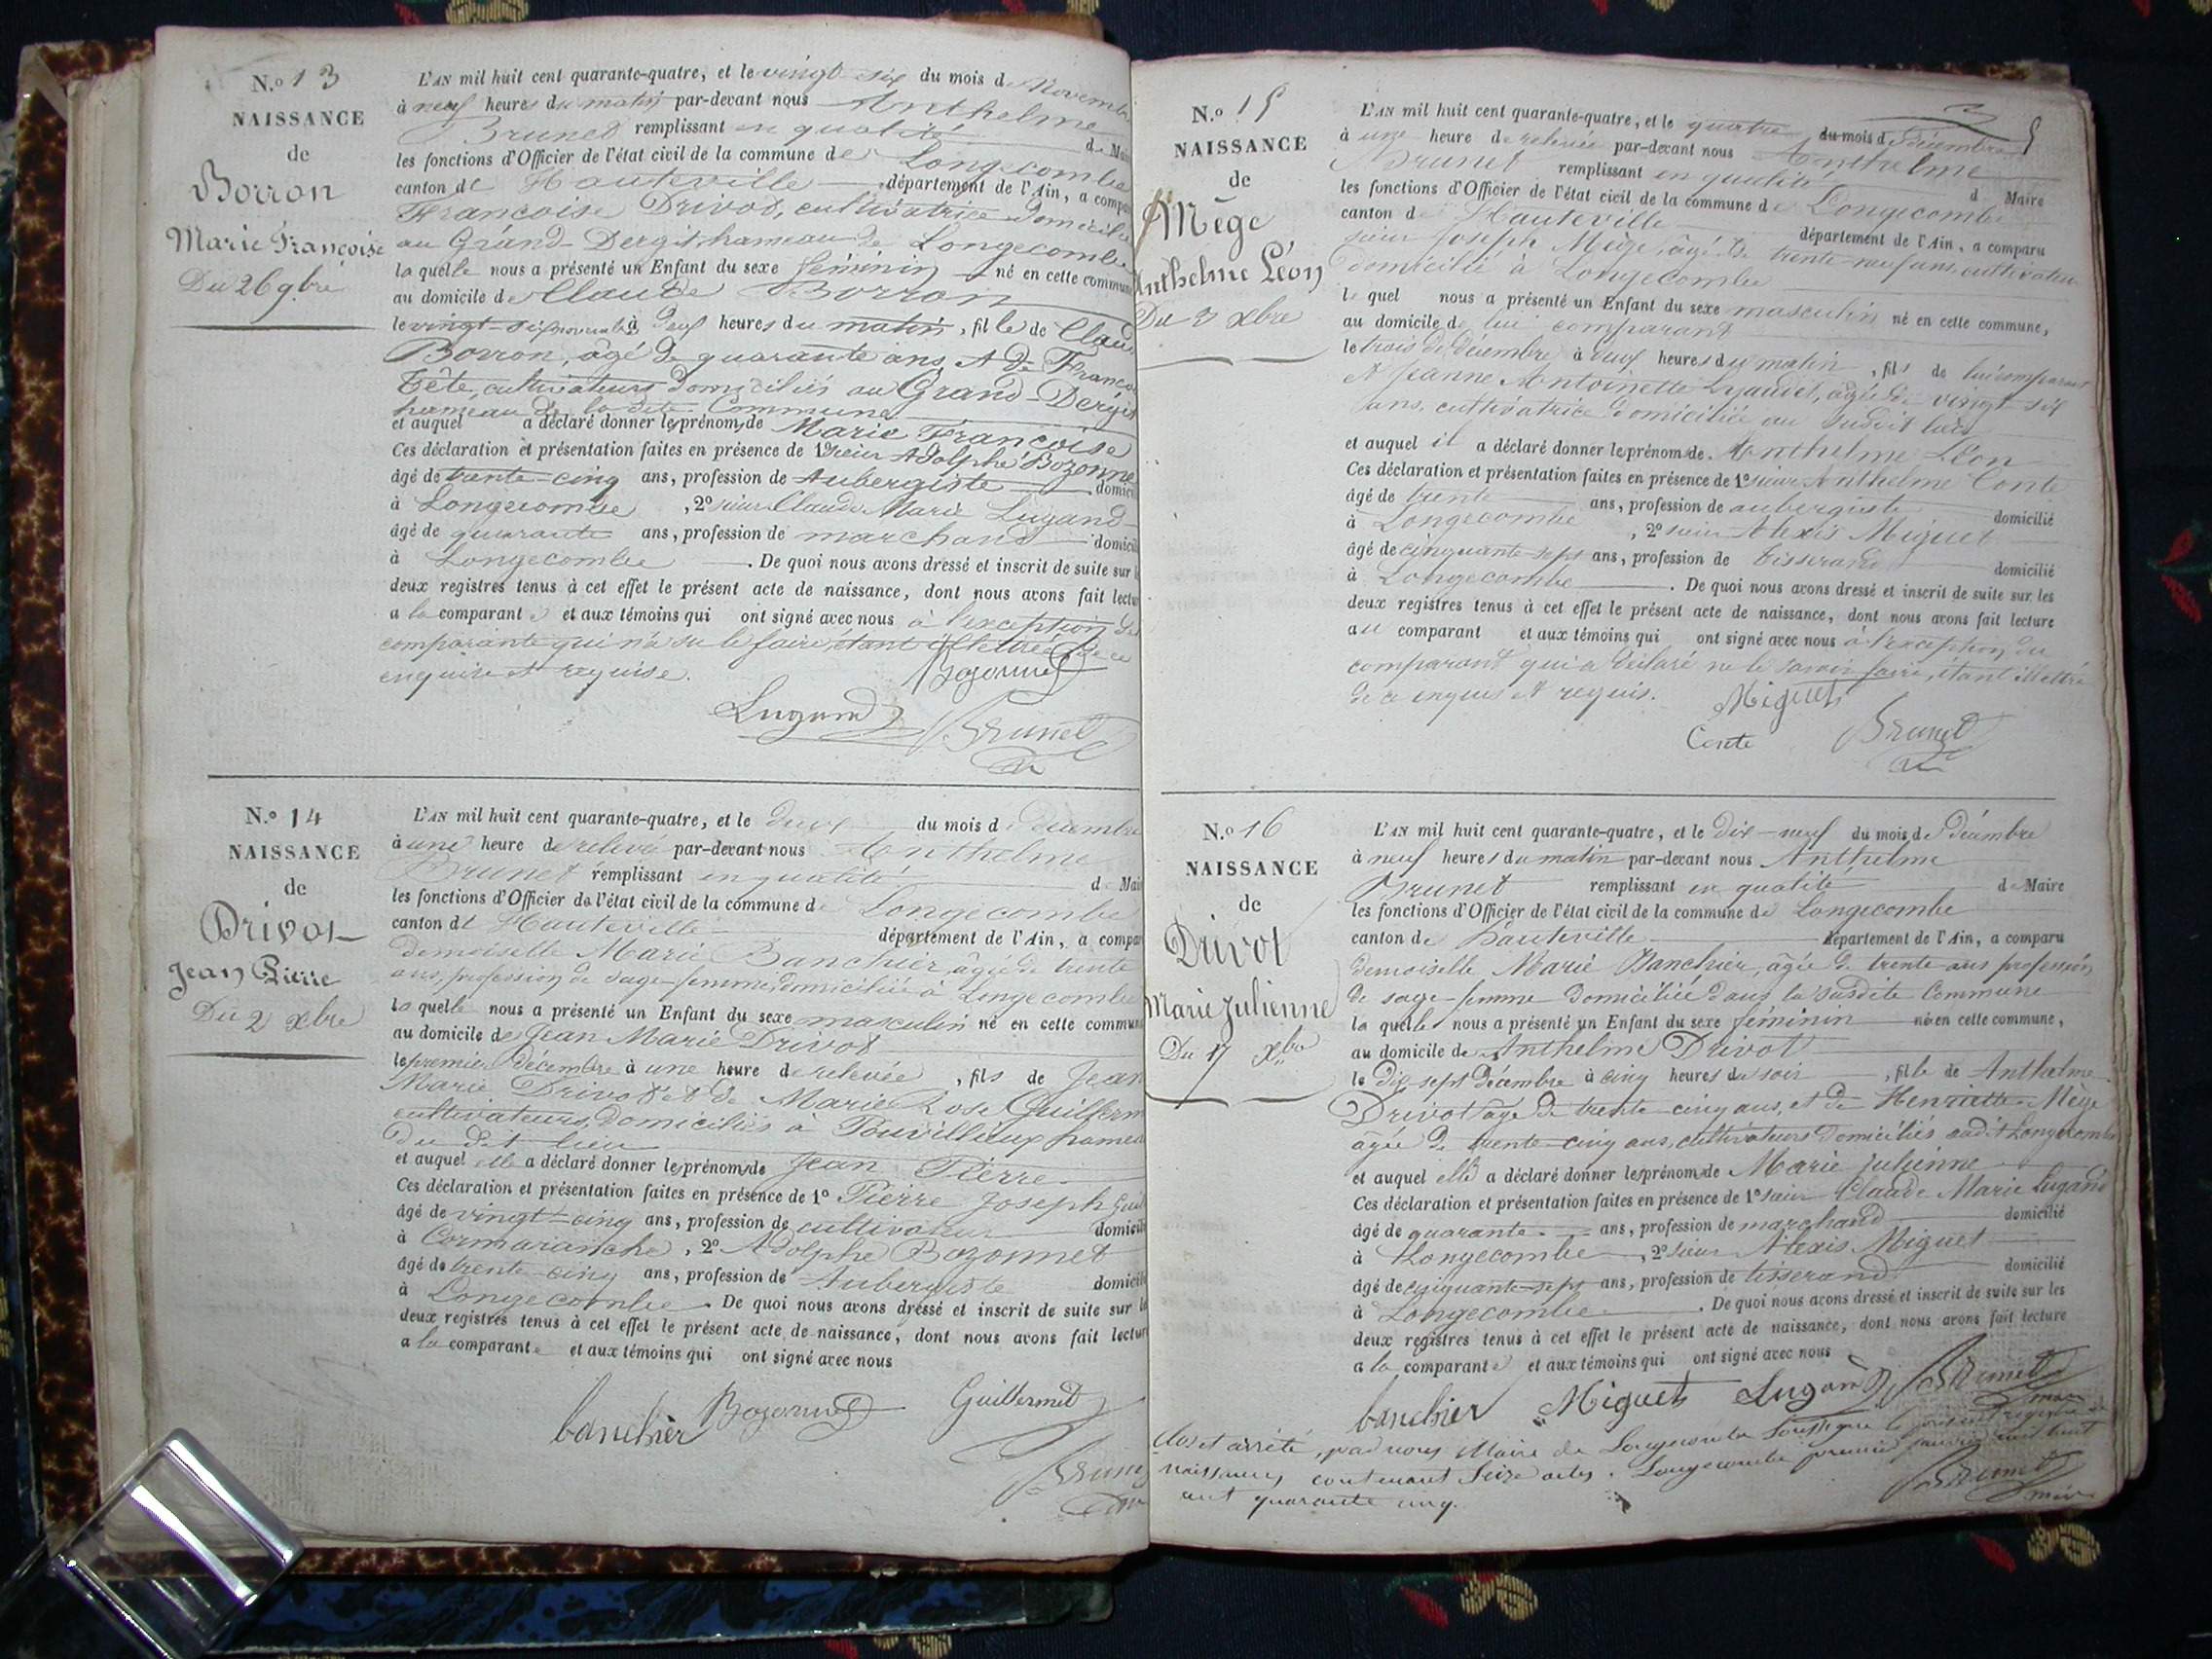 N.o 13
NAISSANCE
de
Borron
Marie Françoise
Du 26 9bre
L'AN mil huit cent quarante-quatre, et le vingt six du mois de Novembre
à neuf heures du matin par-devant nous Anthelme
Brunet remplissant en qualité de Mai
les fonctions d'Officier de l'état civil de la commune de Longecombe
canton de Hauteville département de l'Ain, a compa
Françoise Drivot, cultivatrice domiciliée
au Grand-Dergis hameau de Longecombe
la quelle nous a présenté un Enfant du sexe féminin né en cette commune
au domicile de Claude Borron
le vingt-six novembre à deux heures du matin, fille de Claude
Borron, âgé de quarante ans, et de França
Tête, cultivateurs domiciliés au Grand-Dergis
hameau de la dite Commune
et auquel a déclaré donner les prénoms de Marie Françoise
Ces déclaration et présentation faites en présence de 1o sieur Adolphe Bozonne
âgé de trente-cinq ans, profession de Aubergiste domici
à Longecombe, 2o sieur Claude Marie Lugand
âgé de quarante ans, profession de marchand domicili
à Longecombe. De quoi nous avons dressé et inscrit de suite sur l
deux registres tenus à cet effet le présent acte de naissance, dont nous avons fait lectu
a la comparante et aux témoins qui ont signé avec nous à l'exception de
comparante qui n'a su le faire, étant illettrée de ce
enquise et requise.
Bozonnet
Lugand Brunet
N.o 14
NAISSANCE
de
Drivot
Jean Pierre
Du 2 xbre
L'AN mil huit cent quarante-quatre, et le deux du mois de Décembre
à une heure de relevé par-devant nous Anthelme
Brunet remplissant en qualité de Mai
les fonctions d'Officier de l'état civil de la commune de Longecombe
canton de Hauteville département de l'Ain, a compar
demoiselle Marie Banchier, âgée de trente
ans, profession de sage-femme, domiciliée à Longecombe
la quelle nous a présenté un Enfant du sexe masculin né en cette commune
au domicile de Jean Marie Drivot
le premier Décembre à une heure de relevée, fils de Jean
Marie Drivot et de Marie Rose Guillerm
cultivateurs, domiciliés à Pouvillieux hameau
du dit lieu
et auquel elle a déclaré donner les prénoms de Jean Pierre
Ces déclaration et présentation faites en présence de 1o Pierre Joseph Guil
âgé de vingt-cinq ans, profession de cultivateur domicili
à Cormaranche, 2o Adolphe Bozonnet
âgé de trente-cinq ans, profession de Aubergiste domicili
à Longecombe. De quoi nous avons dressé et inscrit de suite sur l
deux registres tenus à cet effet le présent acte de naissance, dont nous avons fait lecture
a la comparante et aux témoins qui ont signé avec nous
banchier Bozonnet Guillermet
Brunet
N.o 15
NAISSANCE
de
Mège
Anthelme Léon
Du 3 xbre
L'AN mil huit cent quarante-quatre, et le quatre du mois de Décembre
à une heure de relevée par-devant nous Anthelme
Brunet remplissant en qualité de Maire
les fonctions d'Officier de l'état civil de la commune de Longecombe
canton de Hauteville département de l'Ain, a comparu
sieur Joseph Mège, âgé de trente-neuf ans, cultivateur
domicilié à Longecombe
le quel nous a présenté un Enfant du sexe masculin né en cette commune,
au domicile de lui comparant
le trois de Décembre à neuf heures du matin, fils de lui comparant
et Jeanne Antoinette, âgée de vingt six
ans, cultivatrice domiciliée au susdit lieu
et auquel il a déclaré donner les prénoms de Anthelme Léon
Ces déclaration et présentation faites en présence de 1o sieur Anthelme Conte
âgé de trente ans, profession de aubergiste domicilié
à Longecombe, 2o sieur Alexis Miguet
âgé de cinquante-sept ans, profession de tisserand domicilié
à Longecombe. De quoi nous avons dressé et inscrit de suite sur les
deux registres tenus à cet effet le présent acte de naissance, dont nous avons fait lecture
au comparant et aux témoins qui ont signé avec nous à l'exception du
comparant qui a déclaré ne le savoir faire, étant illettré
de ce enquis et requis.
Miguet
Conte Brunet
N.o 16
NAISSANCE
de
Drivot
Marie Julienne
Du 17 Xbre
L'AN mil huit cent quarante-quatre, et le dix-neuf du mois de décembre
à neuf heures du matin par-devant nous Anthelme
Brunet remplissant en qualité de Maire
les fonctions d'Officier de l'état civil de la commune de Longecombe
canton de hauteville département de l'Ain, a comparu
demoiselle Marie Banchier, âgée de trente ans profession
de sage-femme domiciliée dans la susdite Commune
la quelle nous a présenté un Enfant du sexe féminin né en cette commune,
au domicile de Anthelme Drivot
le dix sept décembre à cinq heures du soir, fille de Anthelme
Drivot âgé de trente-cinq ans, et de Henriette Mège
âgée de trente-cinq ans, cultivateurs domiciliés audit Longecombe
et auquel elle a déclaré donner les prénoms de Marie Julienne
Ces déclaration et présentation faites en présence de 1o sieur Claude Marie Lugand
âgé de quarante ans, profession de marchand domicilié
à Longecombe, 2o sieur Alexis Miguet
âgé de cinquante-sept ans, profession de tisserand domicilié
à Longecombe. De quoi nous avons dressé et inscrit de suite sur les
deux registres tenus à cet effet le présent acte de naissance, dont nous avons fait lecture
a la comparante et aux témoins qui ont signé avec nous
banchier Miguet Lugand Brunet
maire
Clos et arrêté, par nous Maire de Longecombe soussigné le présent registre de
naissances contenant seize actes. Longecombe premier janvier mil huit
cent quarante cinq.
Brunet
maire